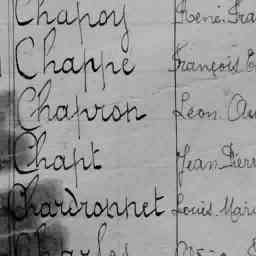 Chapoy René. Fra
Chappe François E
Chapron Léon. Au
Chapt Jean Pierr
Chardronnet Louis Mari
Charles